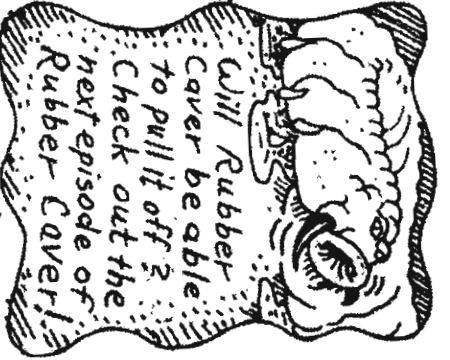 Will Rubber
Caver be able
to pull it off?
Check out the
next episode of
Rubber Caver!